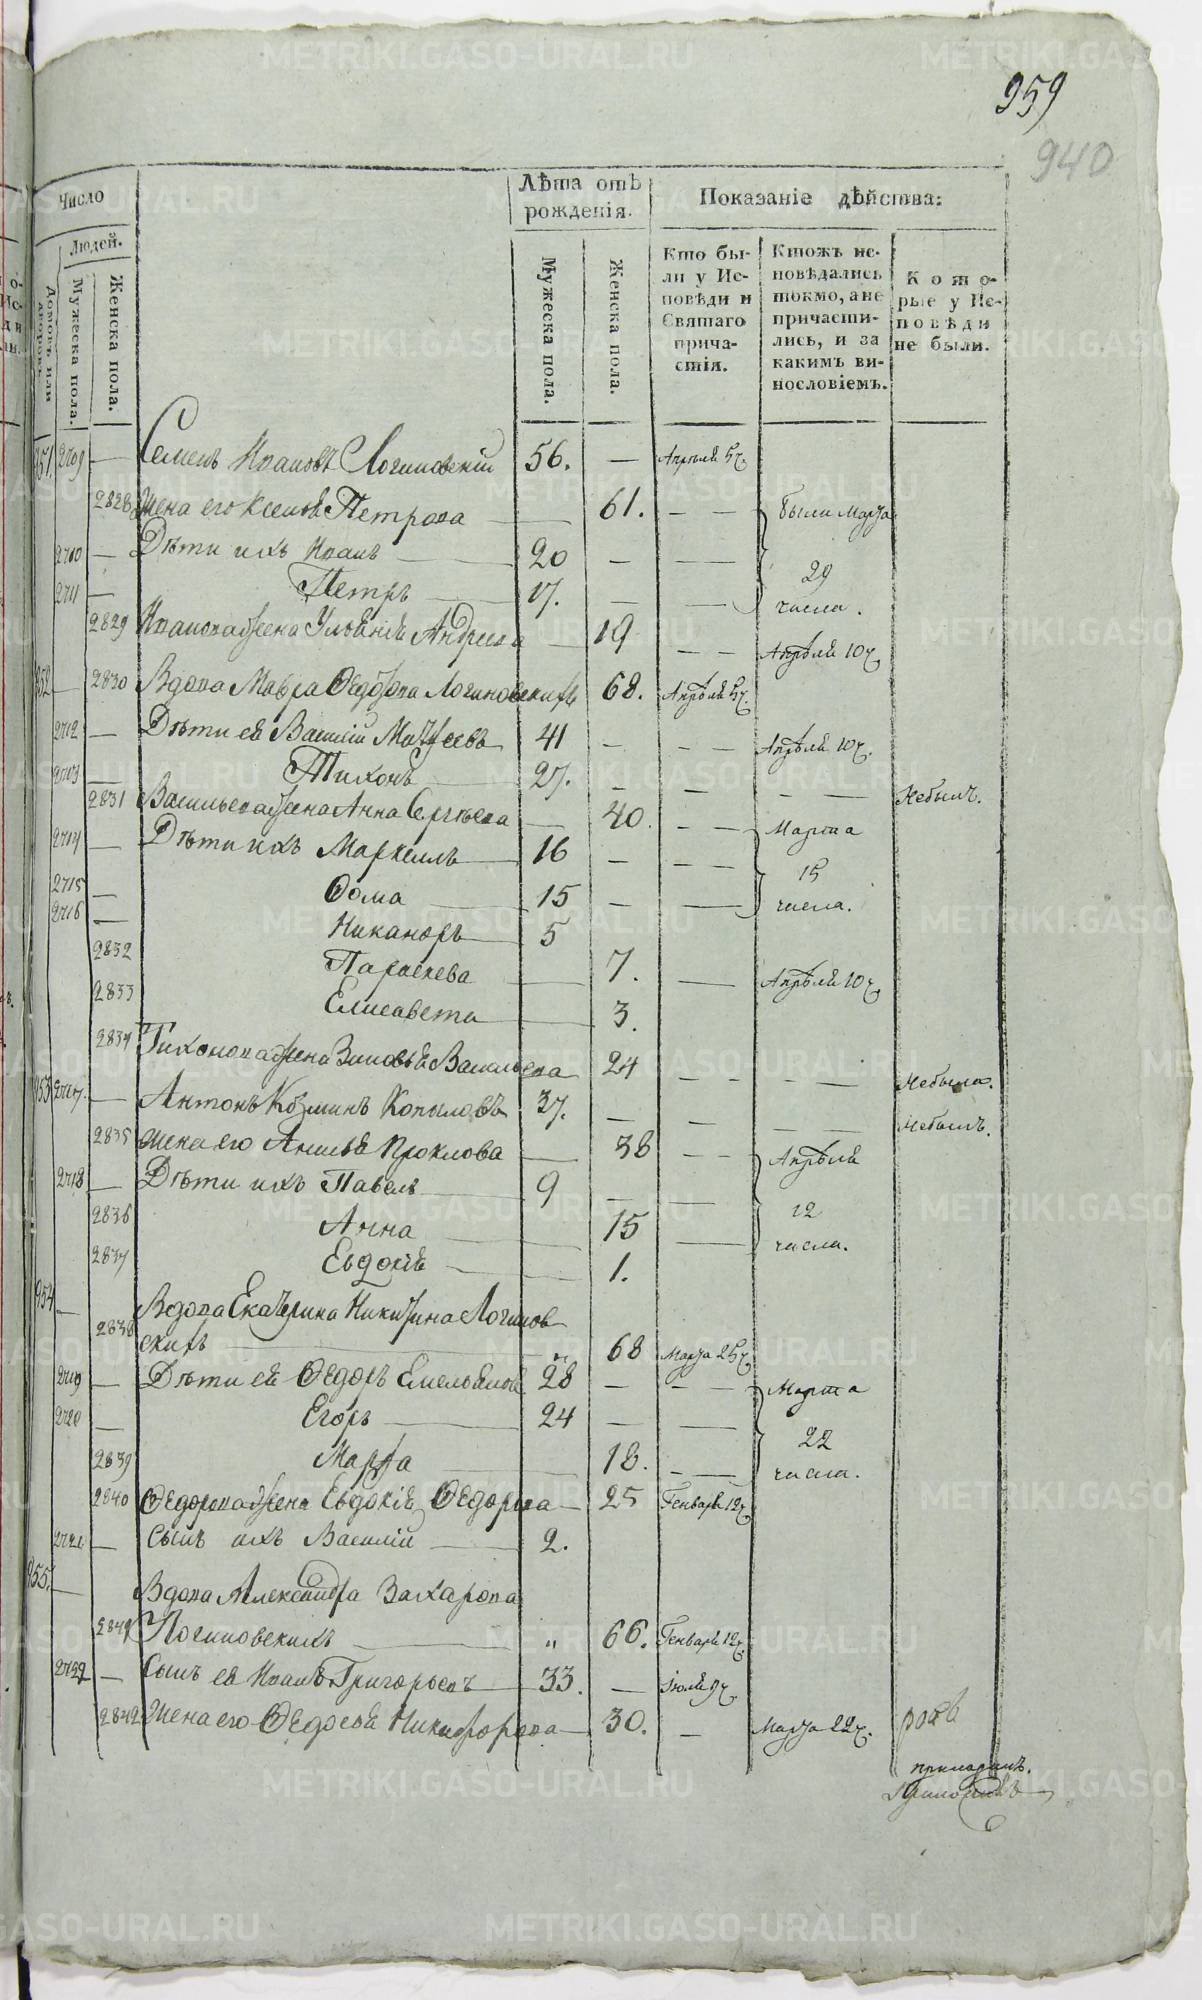 959
940
Число
Людей.
Домовъ или дворовъ.
Мужеска пола.
Женска пола.
Лѣта отъ рожденія.
Мужеска пола.
Женска пола.
Показаніе дѣйства:
Кто были у Исповѣди и Святаго причастія.
Ктожъ исповѣдались токмо, а не причастились, и за какимъ винословіемъ.
Которые у Исповѣди не были.
951. 2709 — Семенъ Ивановъ Логиновскій 56. — Апрѣля 5ч.
2828 Жена его Ксенія Петрова — 61. — — были Марта
2710 — Дѣти ихъ Иванъ — 20 — — 29
2711 — Петръ — 17. — — числа.
2829 Иванова жена Ульянія Андреева — 19 — — Апрѣля 10ч.
952 — 2830 Вдова Мавра Ѳедорова Логиновскихъ 68. Апрѣля 5ч.
2712 — Дѣти ея Василій Матѳеевъ 41 — — — Апрѣля 10ч.
2713 — Тихонъ — 27. — — — — — Небылъ.
2831 Васильева жена Анна Сергѣева — 40. — — Марта
2714 — Дѣти ихъ Маркеллъ — 16 — — — 15
2715 — Ѳома — 15 — — числа.
2716 — Никаноръ — 5
2832 Параскева — 7. — Апрѣля 10ч.
2833 Елисавета — 3.
2834 Тихонова жена Зиновья Васильева 24 — — — — Небыла.
953 2717. — Антонъ Козминъ Копыловъ 37. — — — — Небылъ.
2835 Жена его Анисья Проклова — 38 — — Апрѣля
2718 — Дѣти ихъ Павелъ — 9 — — 12
2836 Анна — 15 — числа.
2837 Евдокія — 1.
954 — Вдова Екатерина Никитина Логинов
2838 скихъ — „ 68 Марта 25ч.
2719 — Дѣти ея Ѳедоръ Емельяновъ 28 — — — Марта
2720 — Егоръ — 24 — — 22
2839 Марѳа — 18. — — числа.
2840 Ѳедорова жена Евдокія Ѳедорова — 25 Генваря 12ч.
2721 — Сынъ ихъ Василій — 2.
955. — Вдова Александра Захарова
2841 Логиновскихъ — „ 66. Генваря 12ч.
2722 — Сынъ ея Иванъ Григорьевъ 33. — Іюля 9ч.
2842 Жена его Ѳедосья Никифорова — 30. — Марта 22ч.